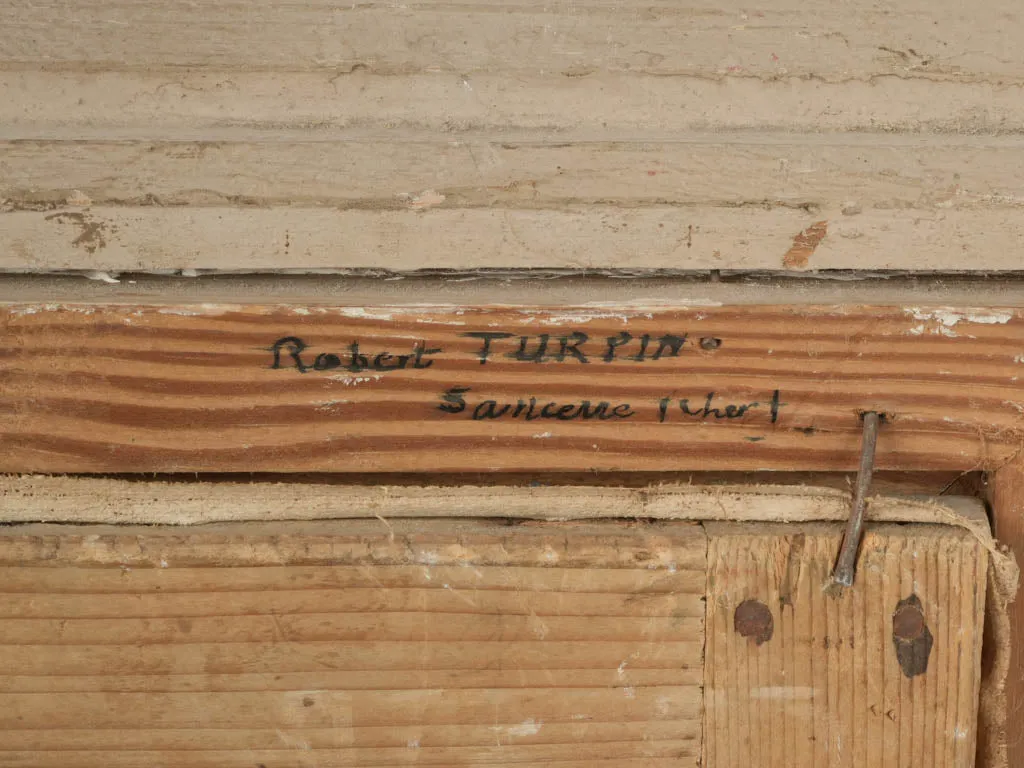 Robert TURPIN.
Sancerre (Cher)